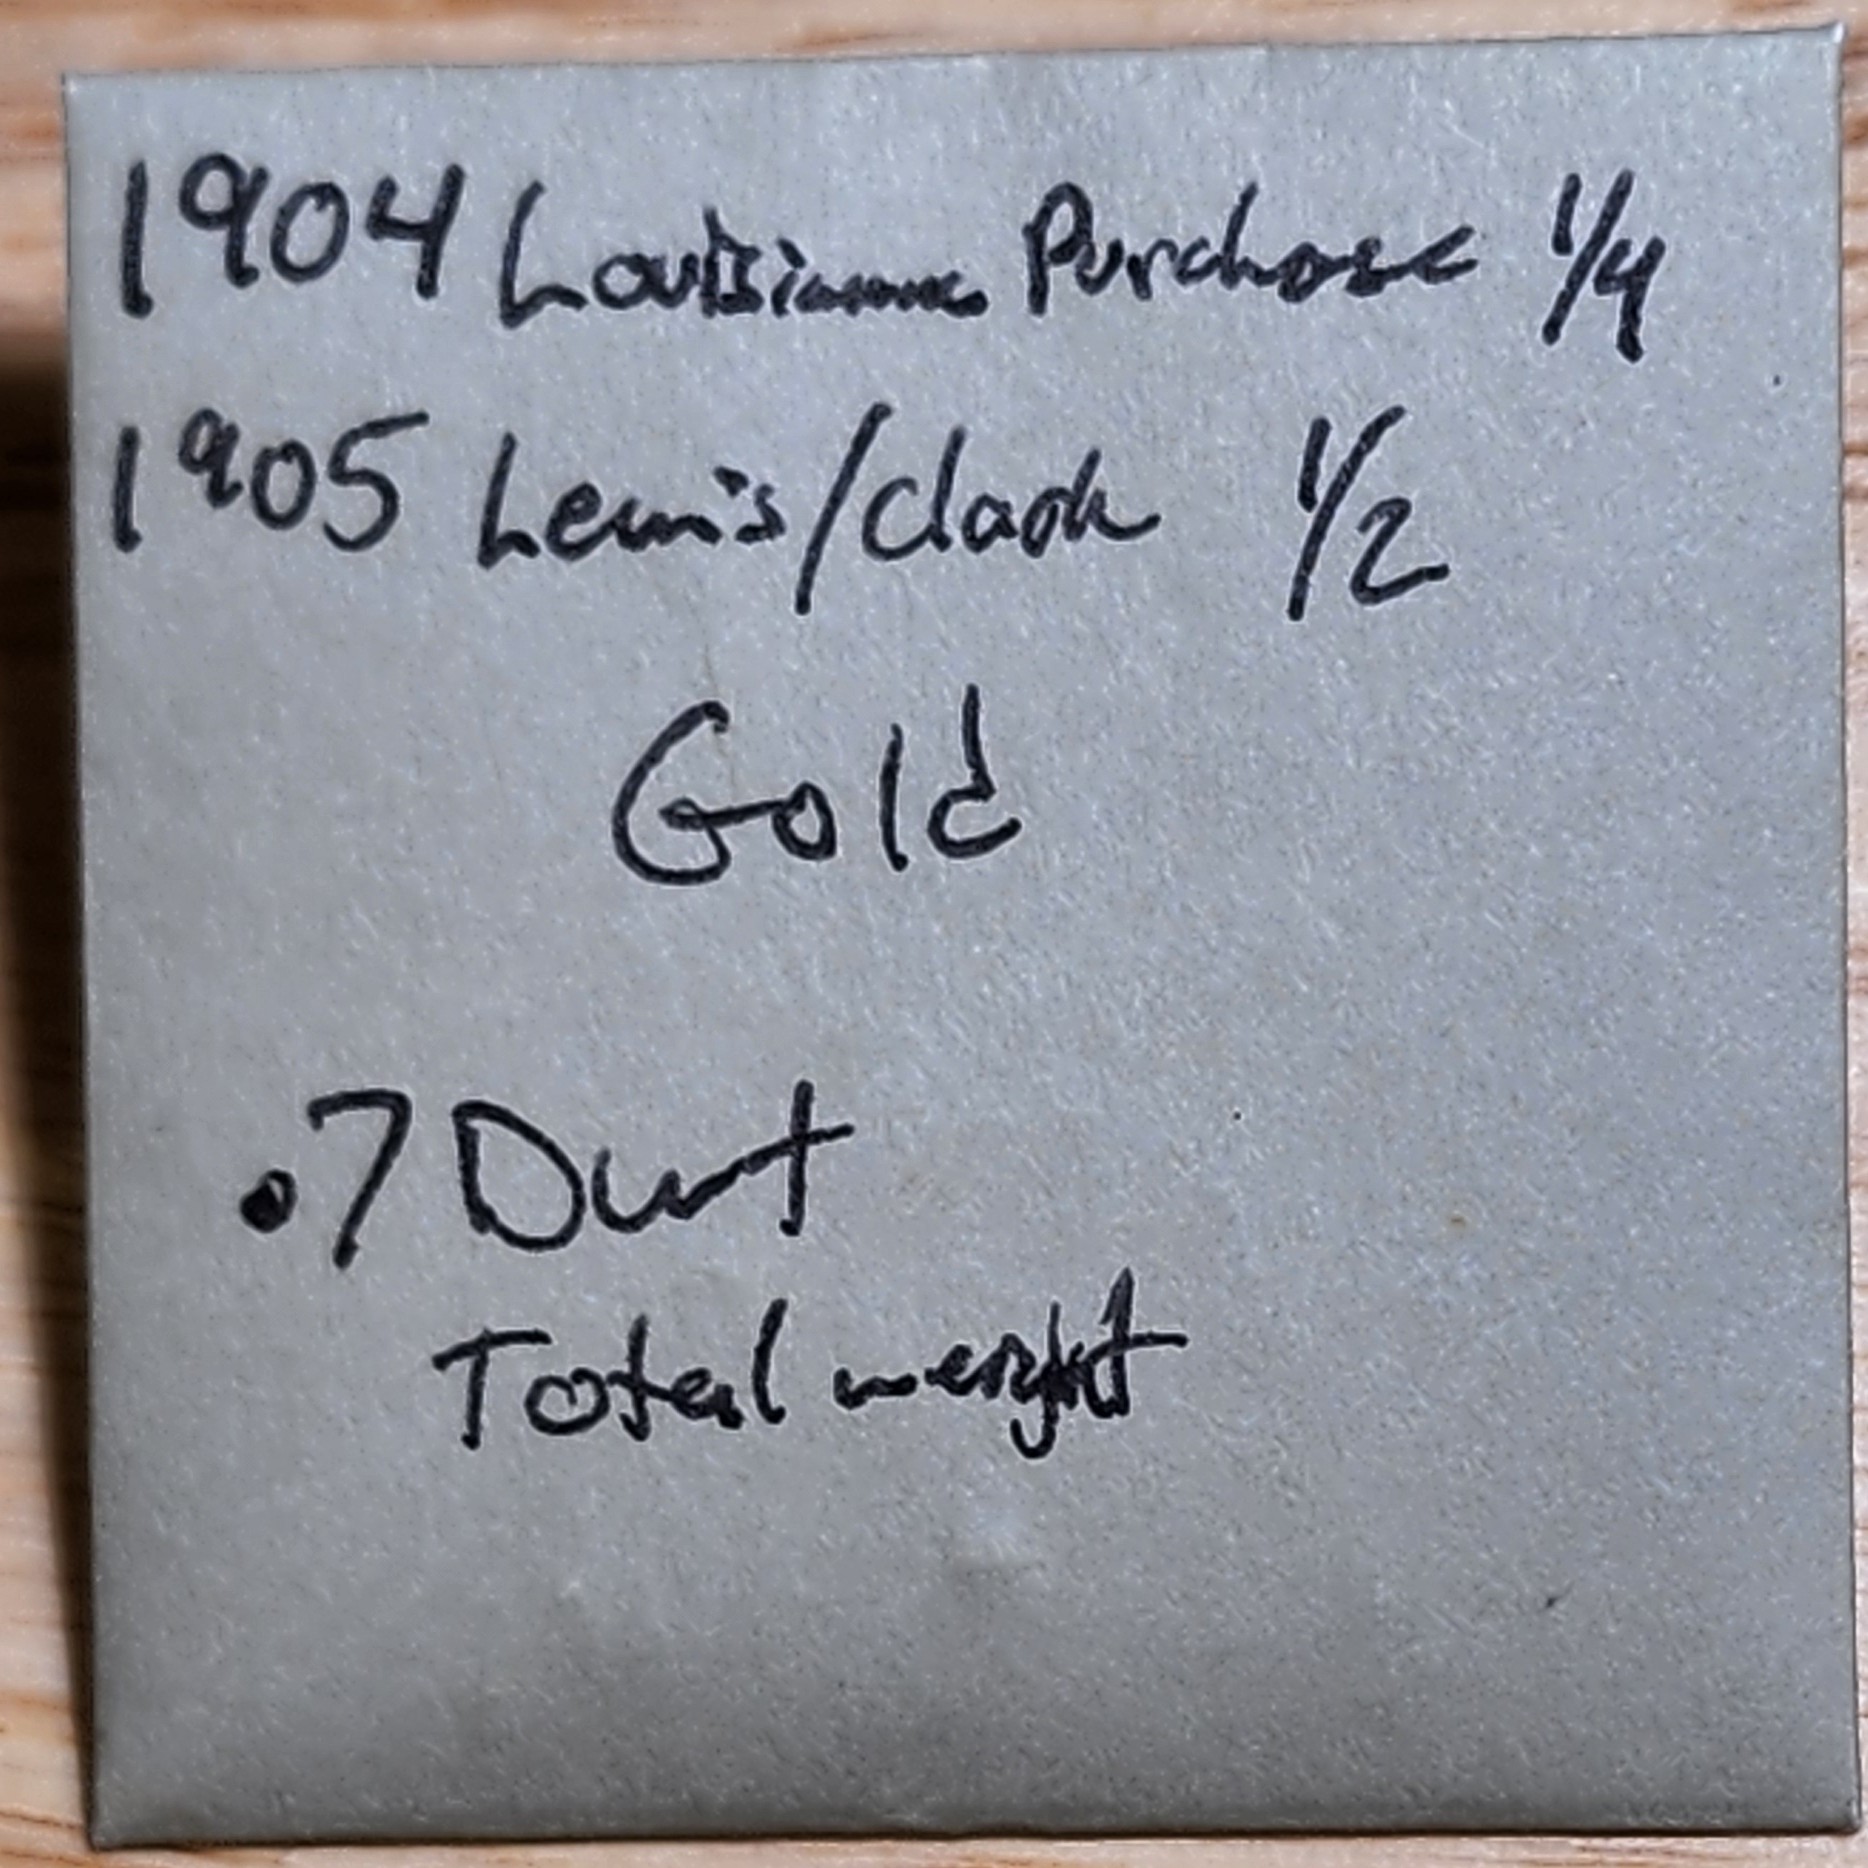 1904 Louisiana Purchase 1/4
1905 Lewis/Clark 1/2
Gold
.7 Dwt
Total weight